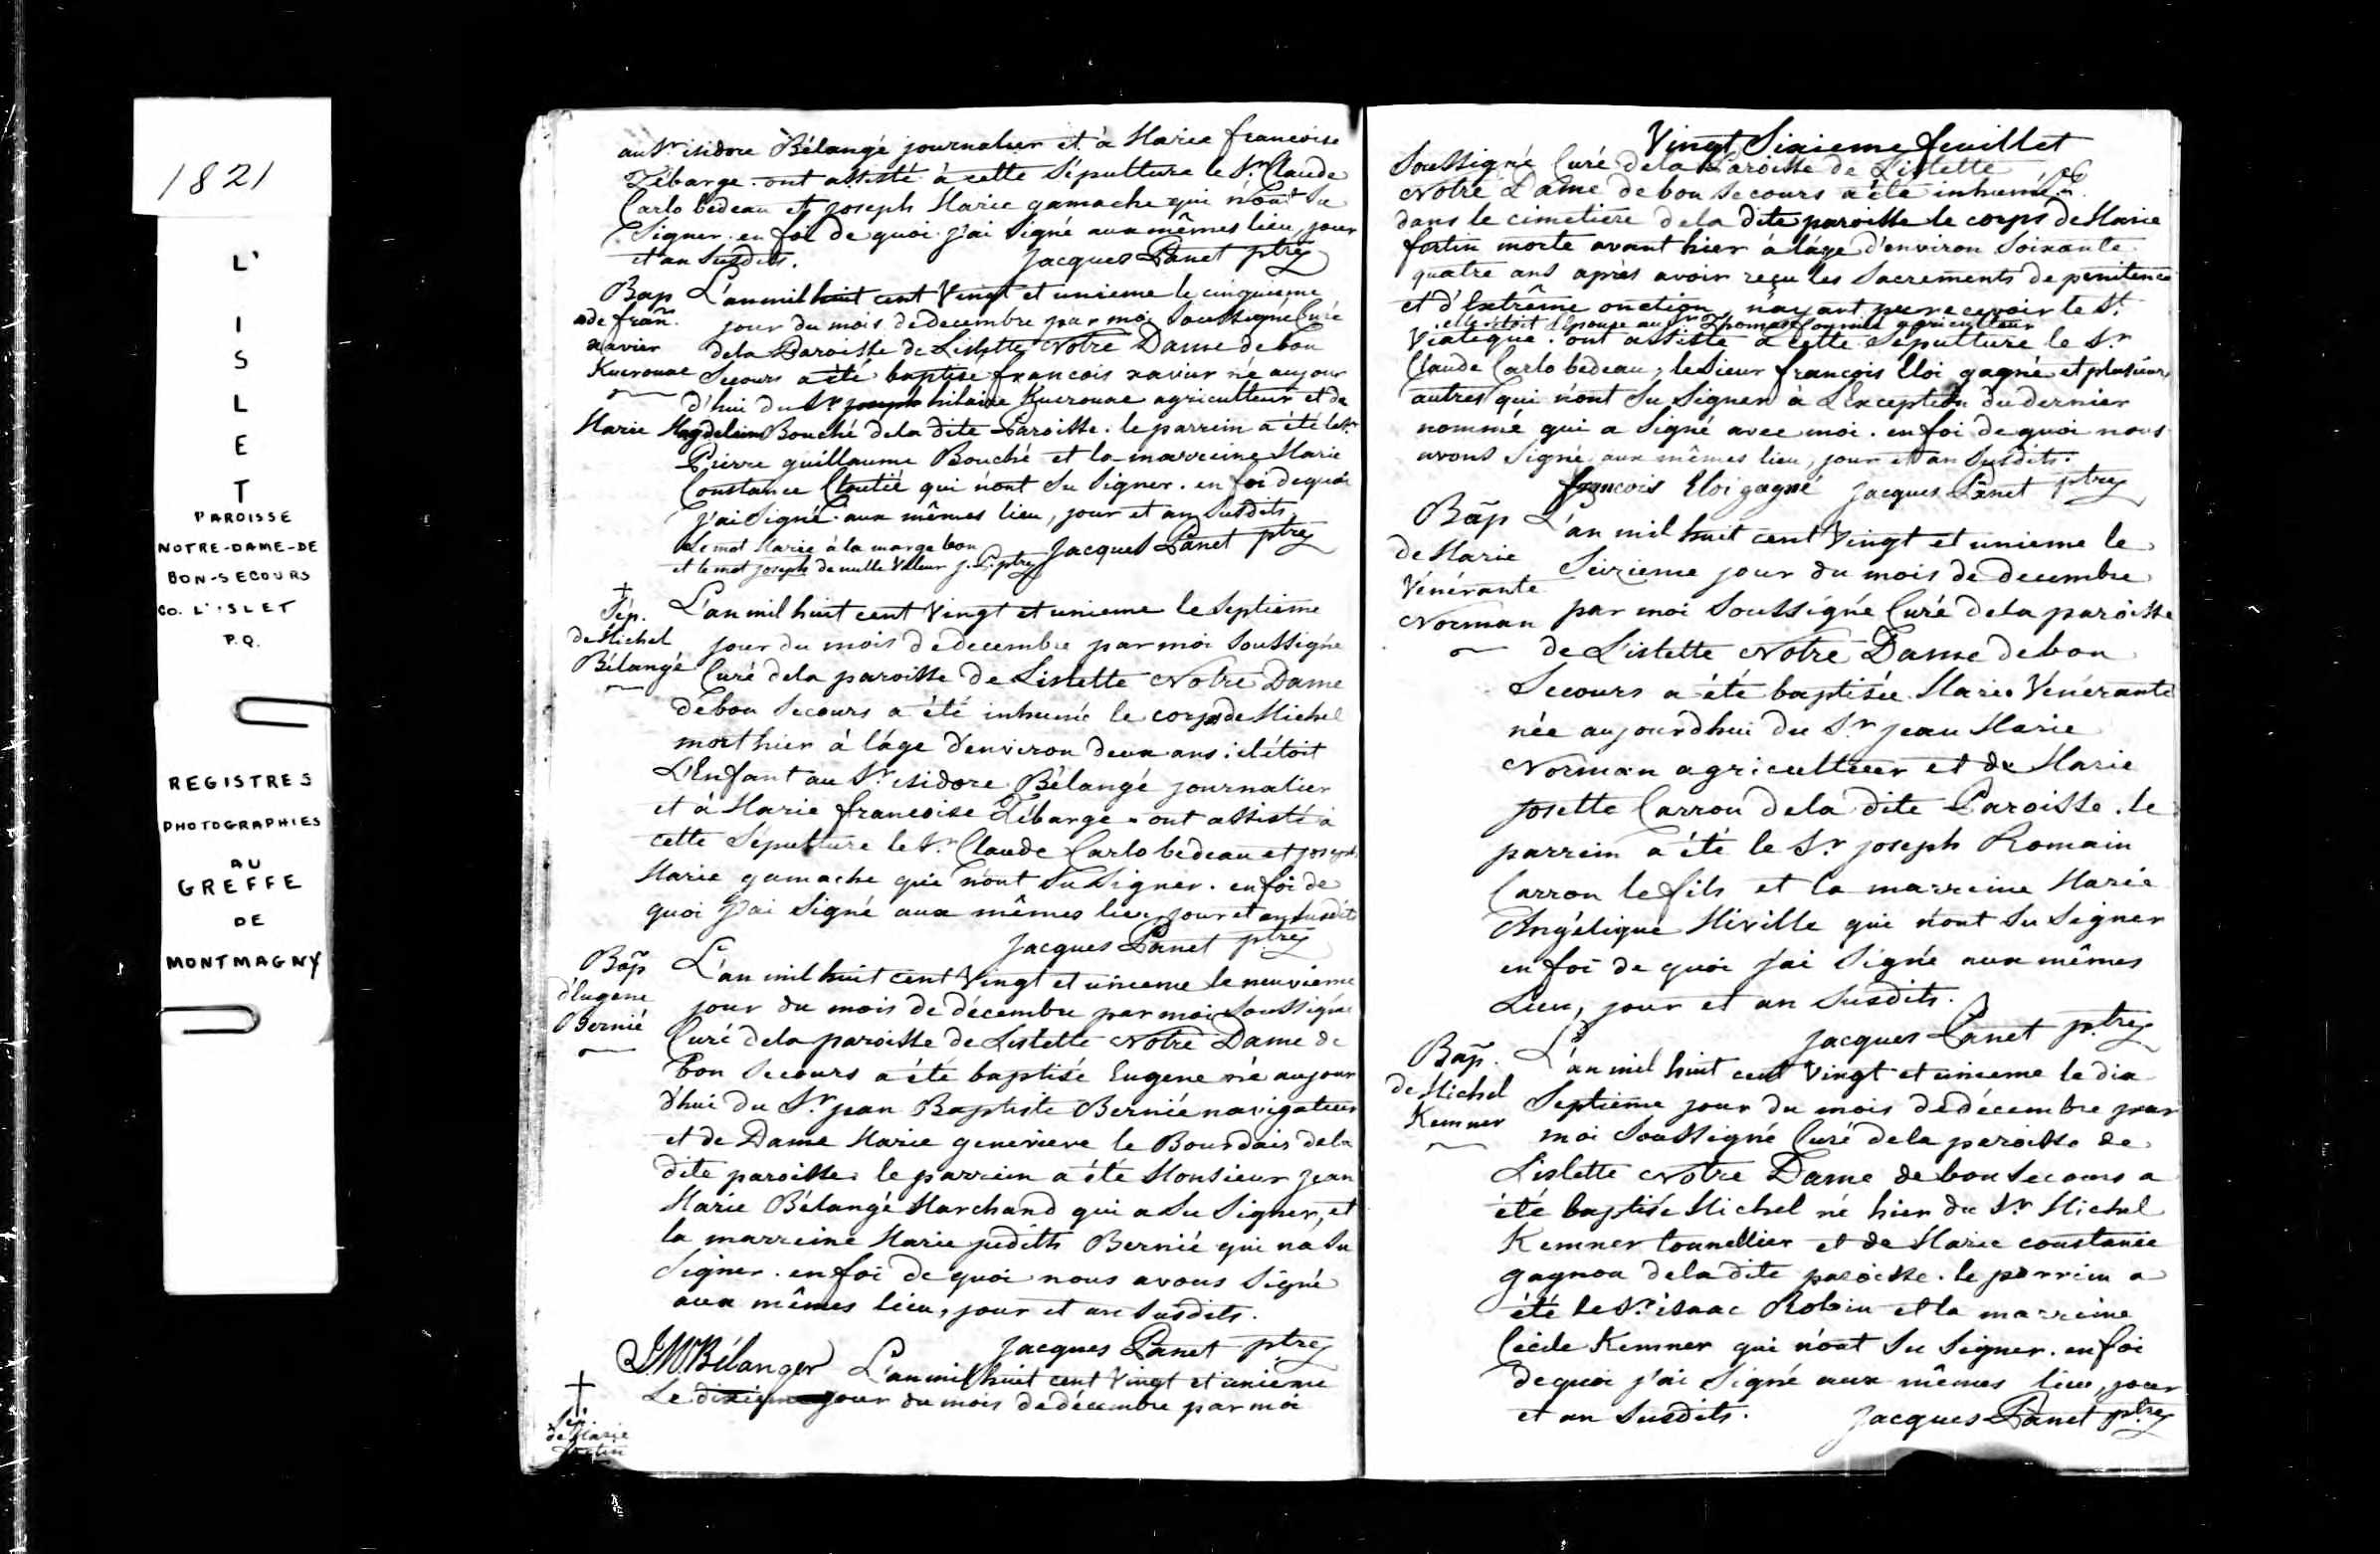 1821
L'
I
S
L
E
T
PAROISSE
NOTRE-DAME-DE
BON-SECOURS
CO. L'ISLET
P.Q.
REGISTRES
PHOTOGRAPHIES
AU
GREFFE
DE
MONTMAGNY
au Sr isidore Bélangé journalier et à Marie francoise
Zébarge. ont assisté à cette Sépulture le Sr. Claude
Carlo bedeau et joseph Marie gamache qui n'ont Su
Signer. en foi de quoi j'ai Signé aux mêmes lieu, jour
et an Susdits. Jacques Panet ptre
Bap L'an mil huit cent Vingt et unieme le cinquieme
de fran. jour du mois de decembre par moi Soussigné Curé
xavier dela Paroisse de Lislette Notre Dame de bon
Kuerouac Secours a été baptise francois xavier né aujour
d'hui du Sr joseph hilaire Kuerouac agriculteur et de
Marie Magdeleine Bouché dela dite Paroisse. le parrein a été le Sr.
Pierre guillaume Bouché et la marreine Marie
Constance Cloutié qui n'ont Su Signer. en foi de quoi
j'ai Signé aux mêmes lieu, jour et an Susdits,
Le mot Marie à la marge bon Jacques Panet ptre
et le mot joseph de nulle Valeur J. P. ptre
†
Sép. L'an mil huit cent Vingt et unieme le Septieme
de Michel jour du mois de decembre par moi Soussigné
Bélangé Curé dela paroisse de Lislette Notre Dame
de bon Secours a été inhumé le corps de Michel
mort hier à l'âge d'environ deux ans: il étoit
L'Enfant au Sr. isidore Bélangé journalier
et à Marie francoise Zébarge. ont assisté à
cette Sépulture le Sr. Claude Carlo bedeau et joseph
Marie gamache qui n'ont Su Signer. en foi de
quoi j'ai Signé aux mêmes lieu, jour et an Susdits
Jacques Panet ptre
Bap L'an mil huit cent Vingt et unieme le neuvieme
d'Eugene jour du mois de décembre par moi Soussigné
Bernié Curé dela paroisse de Lislette Notre Dame de
bon Secours a été baptisé Eugene né aujour
d'hui du Sr jean Baptiste Bernié navigateur
et de Dame Marie genevieve le Bourdais dela
dite paroisse. le parrein a été Monsieur jean
Marie Bélangé Marchand qui a Su Signer, et
la marreine Marie judith Bernié qui n'a Su
Signer. en foi de quoi nous avons Signé
aux mêmes lieu, jour et an Susdits.
Jacques Panet ptre
JM Bélanger L'an mil huit cent Vingt et unieme
† Le dixieme jour du mois de décembre par moi
Sép.
de Marie
fortin
Vingt Sixieme feuillet
Soussigné Curé dela Paroisse de Lislette
Notre Dame de bon Secours a été inhumé
dans le cimetiere dela dite paroisse le corps de Marie
fortin morte avant hier à l'âge d'environ Soixante
quatre ans après avoir reçu les Sacrements de penitence
et d'Extrême onction, n'ayant pu recevoir le St.
elle étoit l'épouse au Sr Thomas fournié agriculteur
Viatique. ont assisté à cette Sépulture le Sr
Claude Carlo bedeau, le Sieur francois Eloi gagné et plusieurs
autres qui n'ont Su Signer à L'Exception du dernier
nommé qui a Signé avec moi. en foi de quoi nous
avons Signé aux mêmes lieu, jour et an Susdits.
francois Eloi gagné Jacques Panet ptre
Bap L'an mil huit cent Vingt et unieme le
de Marie Seizieme jour du mois de decembre
Vénérante par moi Soussigné Curé dela paroisse
Norman de Lislette Notre Dame de bon
Secours a été baptisée Marie Vénérante
née aujourdhui du Sr jean Marie
Norman agriculteur et de Marie
josette Carron dela dite Paroisse. le
parrein a été le Sr joseph Romain
Carron le fils et la marreine Marie
Angélique Miville qui n'ont Su Signer
en foi de quoi j'ai Signé aux mêmes
Lieu, jour et an Susdits.
Jacques Panet ptre
Bap. L'an mil huit cent Vingt et unieme le dix
de Michel Septieme jour du mois de décembre par
Kemner moi Soussigné Curé dela paroisse de
Lislette Notre Dame de bon Secours a
été baptisé Michel né hier du Sr Michel
Kemner tonnellier et de Marie constance
gagnon dela dite paroisse. le parrein a
été le Sr. isaac Robin et la marreine
Cécile Kemner qui n'ont Su Signer. en foi
de quoi j'ai Signé aux mêmes lieu, jour
et an Susdits. Jacques Panet ptre